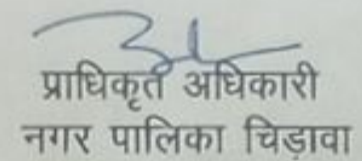 प्राधिकृत अधिकारी
नगर पालिका चिड़ावा